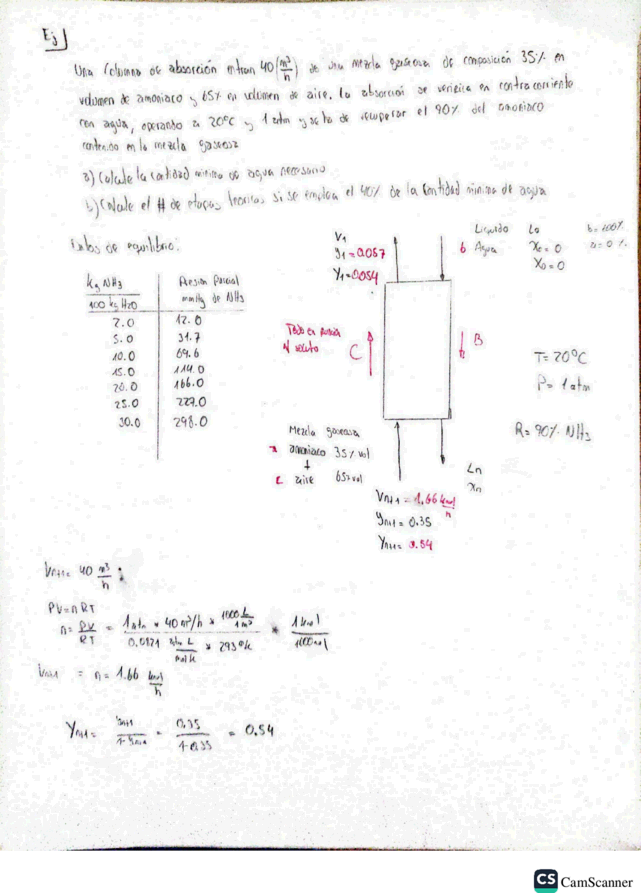 Ej
Una Columna de absorción entran 40 (m³/h) de una mezla gaseosa de composición 35% en
volumen de amoniaco y 65% en volumen de aire. la absorción se verifica en contracorriente
con agua, operando a 20°C y 1 atm y se ha de recuperar el 90% del amoniaco
contenido en la mezcla gaseosa
a) Calcule la Cantidad minima de agua necesario
b) Calcule el # de etapas teoricas si se emplea el 40% de la Cantidad minima de agua
Datos de equilibrio:
Kg NH3 / 100 kg H2O
Presion Parcial mmHg de NH3
2.0 12.0
5.0 31.7
10.0 69.6
15.0 114.0
20.0 166.0
25.0 227.0
30.0 298.0
V1
y1 = 0.057
Y1 = 0.054
b
Liquido
Agua
L0
x0 = 0
X0 = 0
b = 100%
a = 0%
al soluto
C
B
T = 20°C
P = 1 atm
R = 90% NH3
Mezcla gaseosa
amoniaco 35% vol
+
c aire 65% vol
Ln
xn
Vn+1 = 1.66 kmol/h
yn+1 = 0.35
Yn+1 = 0.54
Vn+1 = 40 m³/h
PV = n RT
n = PV/RT = 1 atm * 40 m³/h * 1000 L/1 m³ / 0.0821 atm L/mol k * 293°k * 1 kmol/1000 mol
Vn+1 = n = 1.66 kmol/h
Yn+1 = yn+1/1-yn+1 = 0.35/1-0.35 = 0.54
CS CamScanner